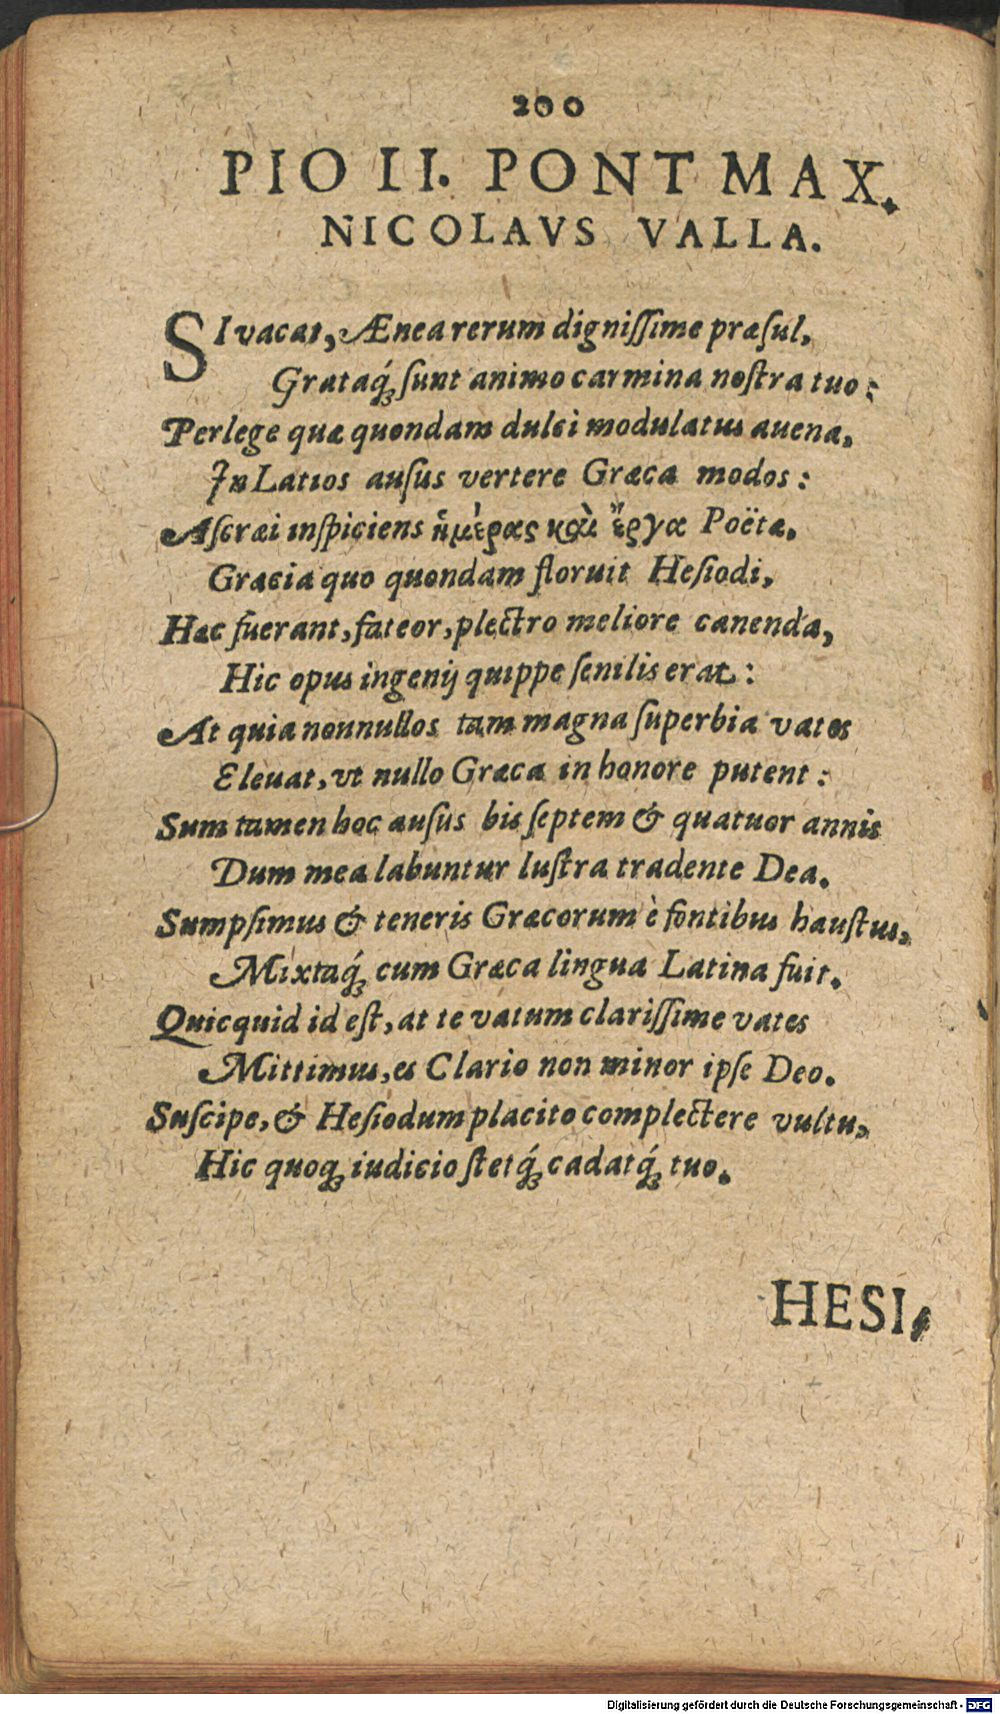 200
PIO II. PONT MAX.
NICOLAVS VALLA.
SI vacat, Ænea rerum digniſſime præſul,
Grataq́; ſunt animo carmina noſtra tuo:
Perlege quæ quondam dulci modulatus auena,
In Latios auſus vertere Græca modos:
Aſcræi inſpiciens ἡμέρας καὶ ἔργα Poëtæ,
Græcia quo quondam floruit Heſiodi,
Hæc fuerant, fateor, plectro meliore canenda,
Hic opus ingenij quippe ſenilis erat:
At quia nonnullos tam magna ſuperbia vates
Eleuat, vt nullo Græca in honore putent:
Sum tamen hoc auſus bis ſeptem & quatuor annis
Dum mea labuntur luſtra tradente Dea.
Sumpſimus & teneris Græcorum è fontibus hauſtus,
Mixtaq́; cum Græca lingua Latina fuit.
Quicquid id eſt, at te vatum clariſſime vates
Mittimus, es Clario non minor ipſe Deo.
Suſcipe, & Heſiodum placito complectere vultu,
Hic quoq; iudicio ſtetq́; cadatq́; tuo.
HESI,
Digitalisierung gefördert durch die Deutsche Forschungsgemeinschaft - DFG